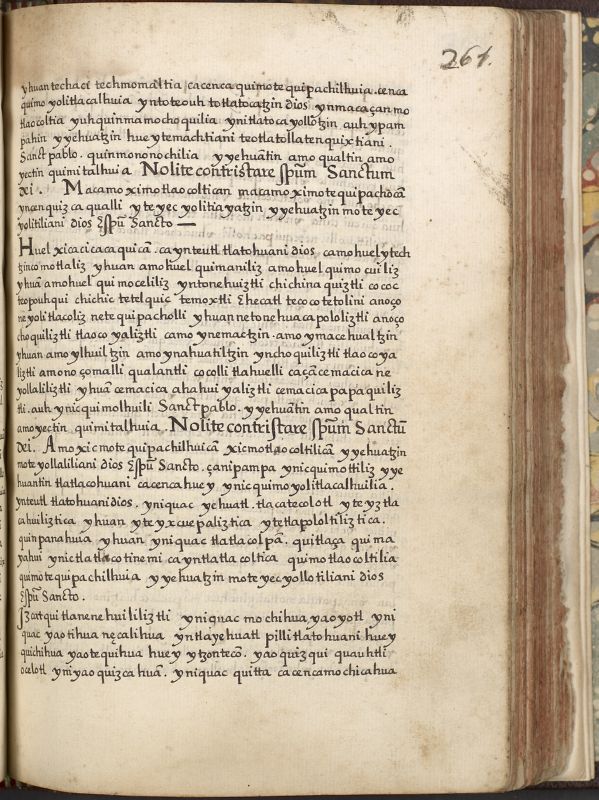 261.
yhuan techaci techmomaltia ca cenca quimotequipachilhuia. cenca
quimoyolitlacalhuia yntoteouh totlatocatzin dios ynmacaçan mo
tlaocoltia yuhquinmamochoquilia ynitlatocayollotzin auh ypam
pahin yyehuatzin huey temachtiani teotlatollatenquixtiani.
Sanct pablo. quinmononochilia yyehuãtin amo qualtin amo
yectin quimitalhuia Nolite contristare spũm Sanctum
dei. Macamo ximotlaocoltican macamo ximotequipachocã
yncenquizca qualli yteyecyolitiayatzin yyehuatzin moteyec
yolitiliani dios Espũ Sancto —
Huel xicacicacaquicã. ca ynteutl tlatohuani dios camo huel ytech
tzinco motlaliz yhuan amo huel quimaniliz amo huel quimocuiliz
yhuã amo huel quimoceliliz yntonehuiztli chichinaquiztli cococ
teopouhqui chichic tetelquic temoxtli Ehecatl tecoco tetolini anoço
neyolitlacoliz netequipacholli yhuan netonehuacapololiztli anoço
choquiliztli tlaocoyaliztli camo ynemactzin. amo ymacehualtzin
yhuan amo ylhuiltzin amo ynahuatiltzin ynchoquiliztli tlaocoya
liztli amo no çomalli qualantli cocolli tlahuelli caçã cemacica ne
yollaliliztli yhuã cemacica ahahuiyaliztli cemacica papaquiliz
tli. auh ynic quimolhuili Sanct pablo. yyehuãtin amo qualtin
amo yectin quimitalhuia. Nolite contristare spũm Sanctũ
dei. Amo xicmotequipachilhuicã xicmotlaocoltilicã yyehuatzin
moteyollaliliani dios Espũ Sancto. çanipampa ynic quimottiliz yye
huantin tlatlacohuani ca cenca huey ynic quimoyolitlacalhuilia.
ynteutl tlatohuani dios. yniquac yehuatl. tlacatecolotl yteyztla
cahuiliztica yhuan yteyxcuepaliztica ytetlapololtiliztica.
quinpanahuia yhuan yniquac tlatlacolpã. quitlaça quima
yahui ynic tlatlacotinemi ca yntlatlacoltica quimotlaocoltilia
quimotequipachilhuia yyehuatzin moteyecyollotiliani dios
Espũ Sancto.
Izcatqui tlanenehuililiztli yniquac mochihua yaoyotl yni
quac yaotihua necalihua yntla yehuatl pilli tlatohuani huey
quichihua yaotequihua huey ytzontecõ. yaoquizqui quauhtli
ocelotl yni yaoquizcahuã. yniquac quitta ca cenca mochicahua